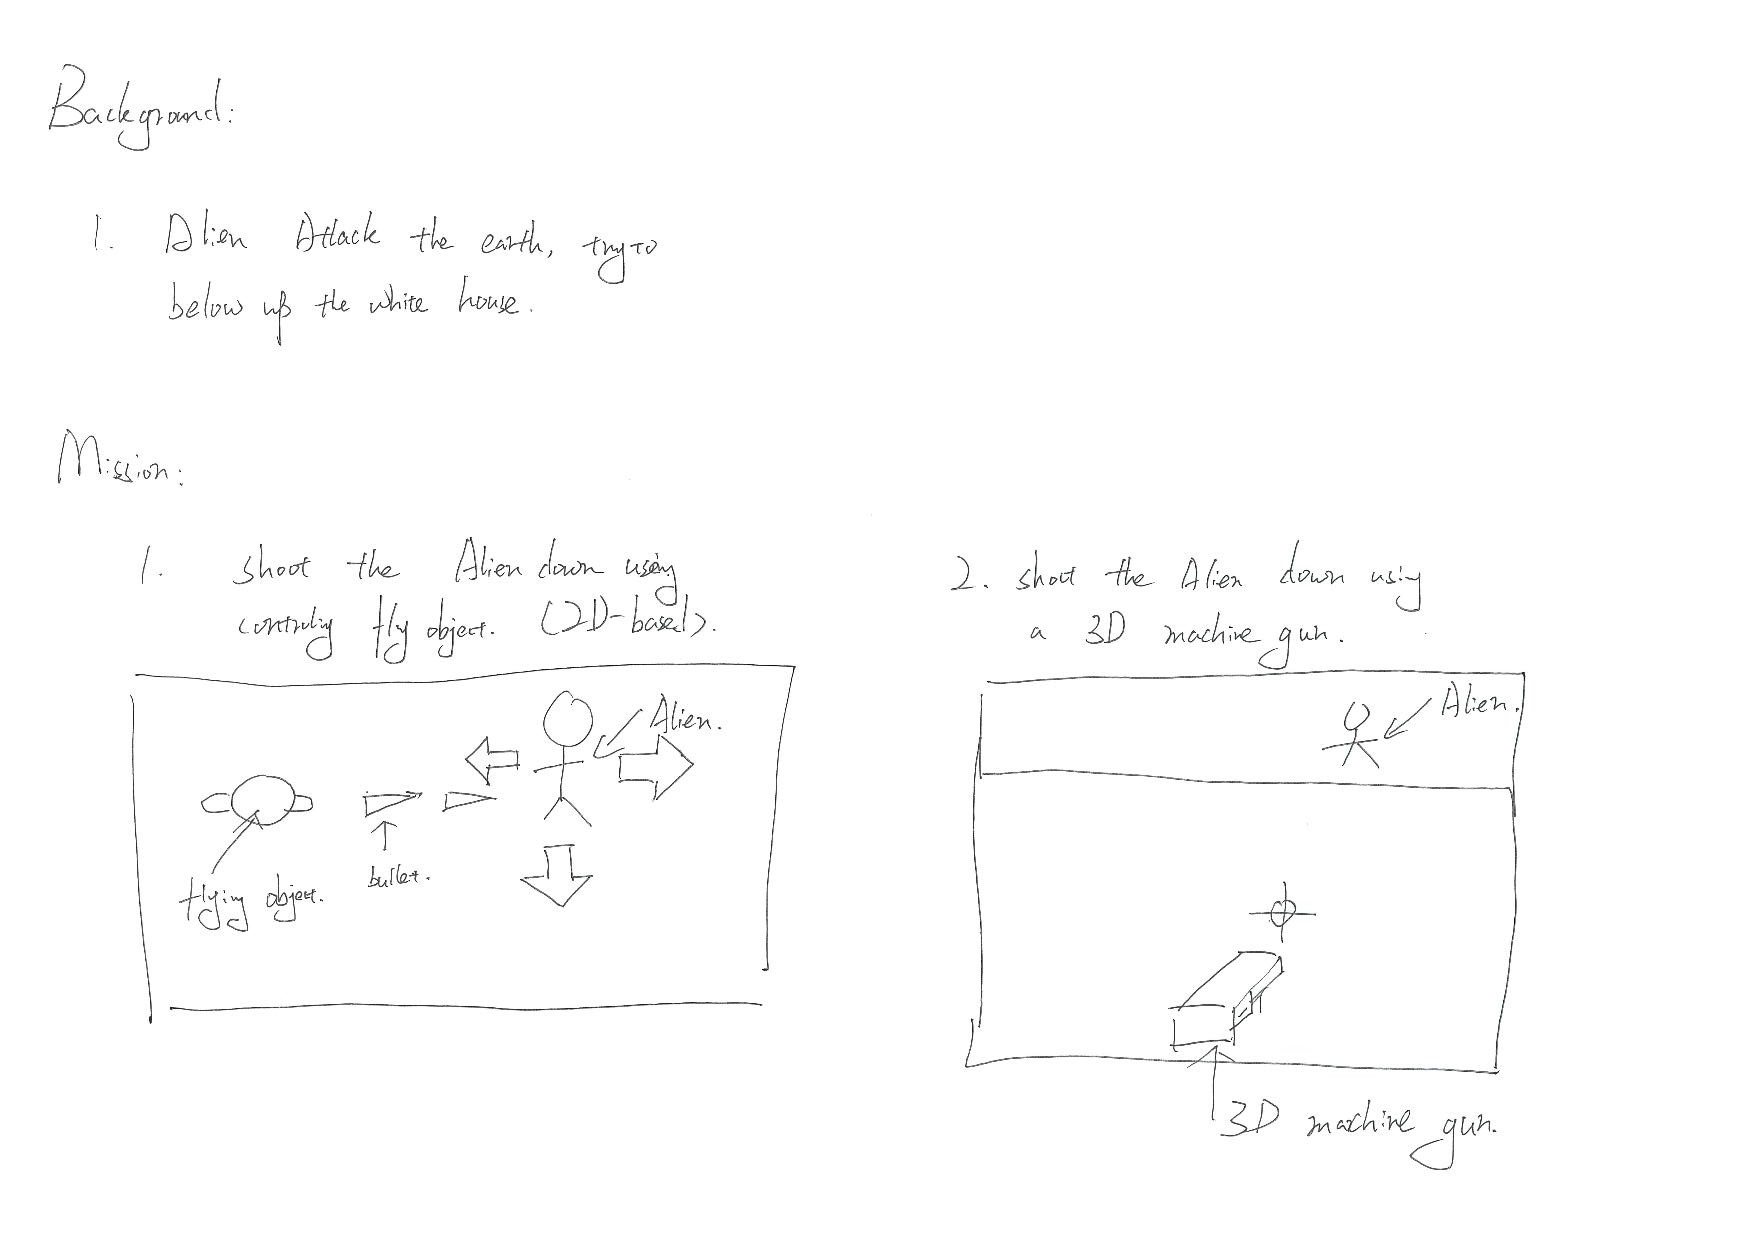 Background:
1. Alien Attack the earth, try to
below up the white house.
Mission:
1. shoot the Alien down using
controling fly object. (2D-based).
Alien.
flying object.
bullet.
2. shoot the Alien down using
a 3D machine gun.
Alien.
3D machine gun.